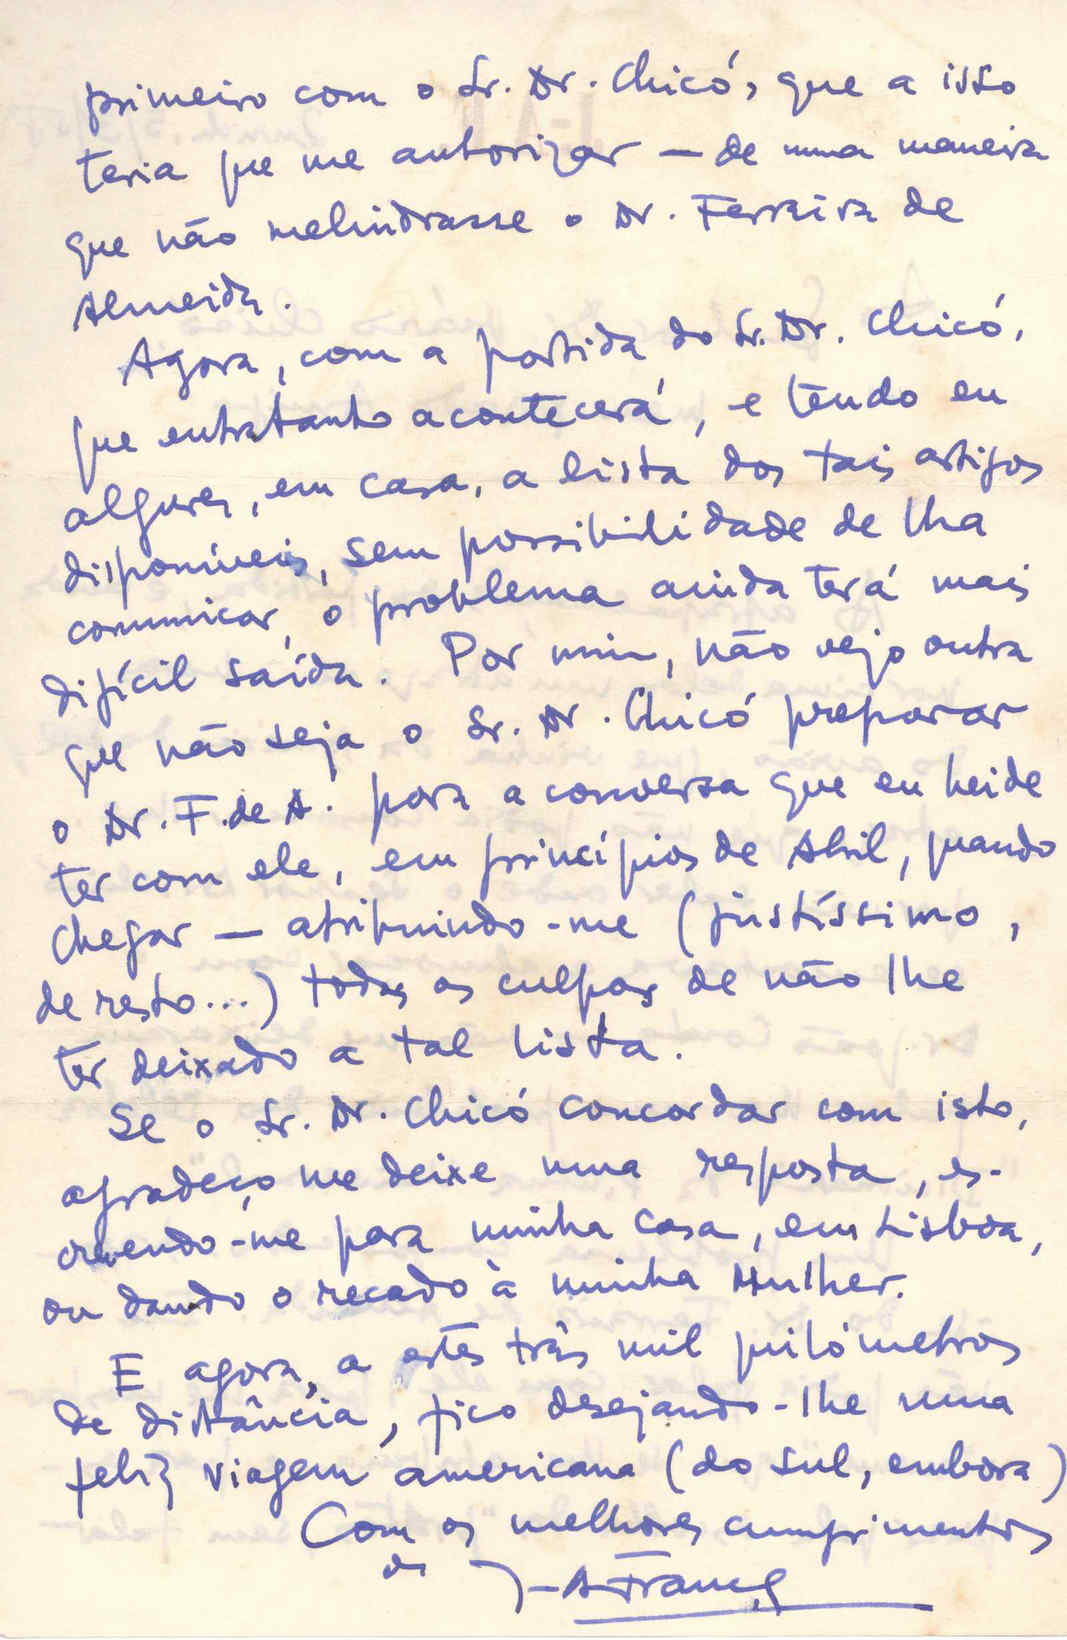 primeiro com o Sr. Dr. Chicó, que a isso
teria que me autorizar — de uma maneira
que não melindrasse o Dr. Ferreira de
Almeida.
Agora, com a partida do Sr. Dr. Chicó,
que entretanto acontecerá, e tendo eu
algures, em casa, a lista dos tais artigos
disponíveis, sem possibilidade de lha
comunicar, o problema ainda terá mais
difícil saída. Por mim, não vejo outra
que não seja o Sr. Dr. Chicó preparar
o Dr. F. de A. para a conversa que eu heide
ter com ele, em princípios de Abril, quando
chegar — atribuindo-me (justíssimo,
de resto...) todas as culpas de não lhe
ter deixado a tal lista.
Se o Sr. Dr. Chicó concordar com isto,
agradeço me deixe uma resposta, es-
crevendo-me para minha casa, em Lisboa,
ou dando o recado à minha Mulher.
E agora, a estes três mil quilómetros
de distância, fico desejando-lhe uma
feliz viagem americana (do sul, embora)
Com os melhores cumprimentos
de J-A França